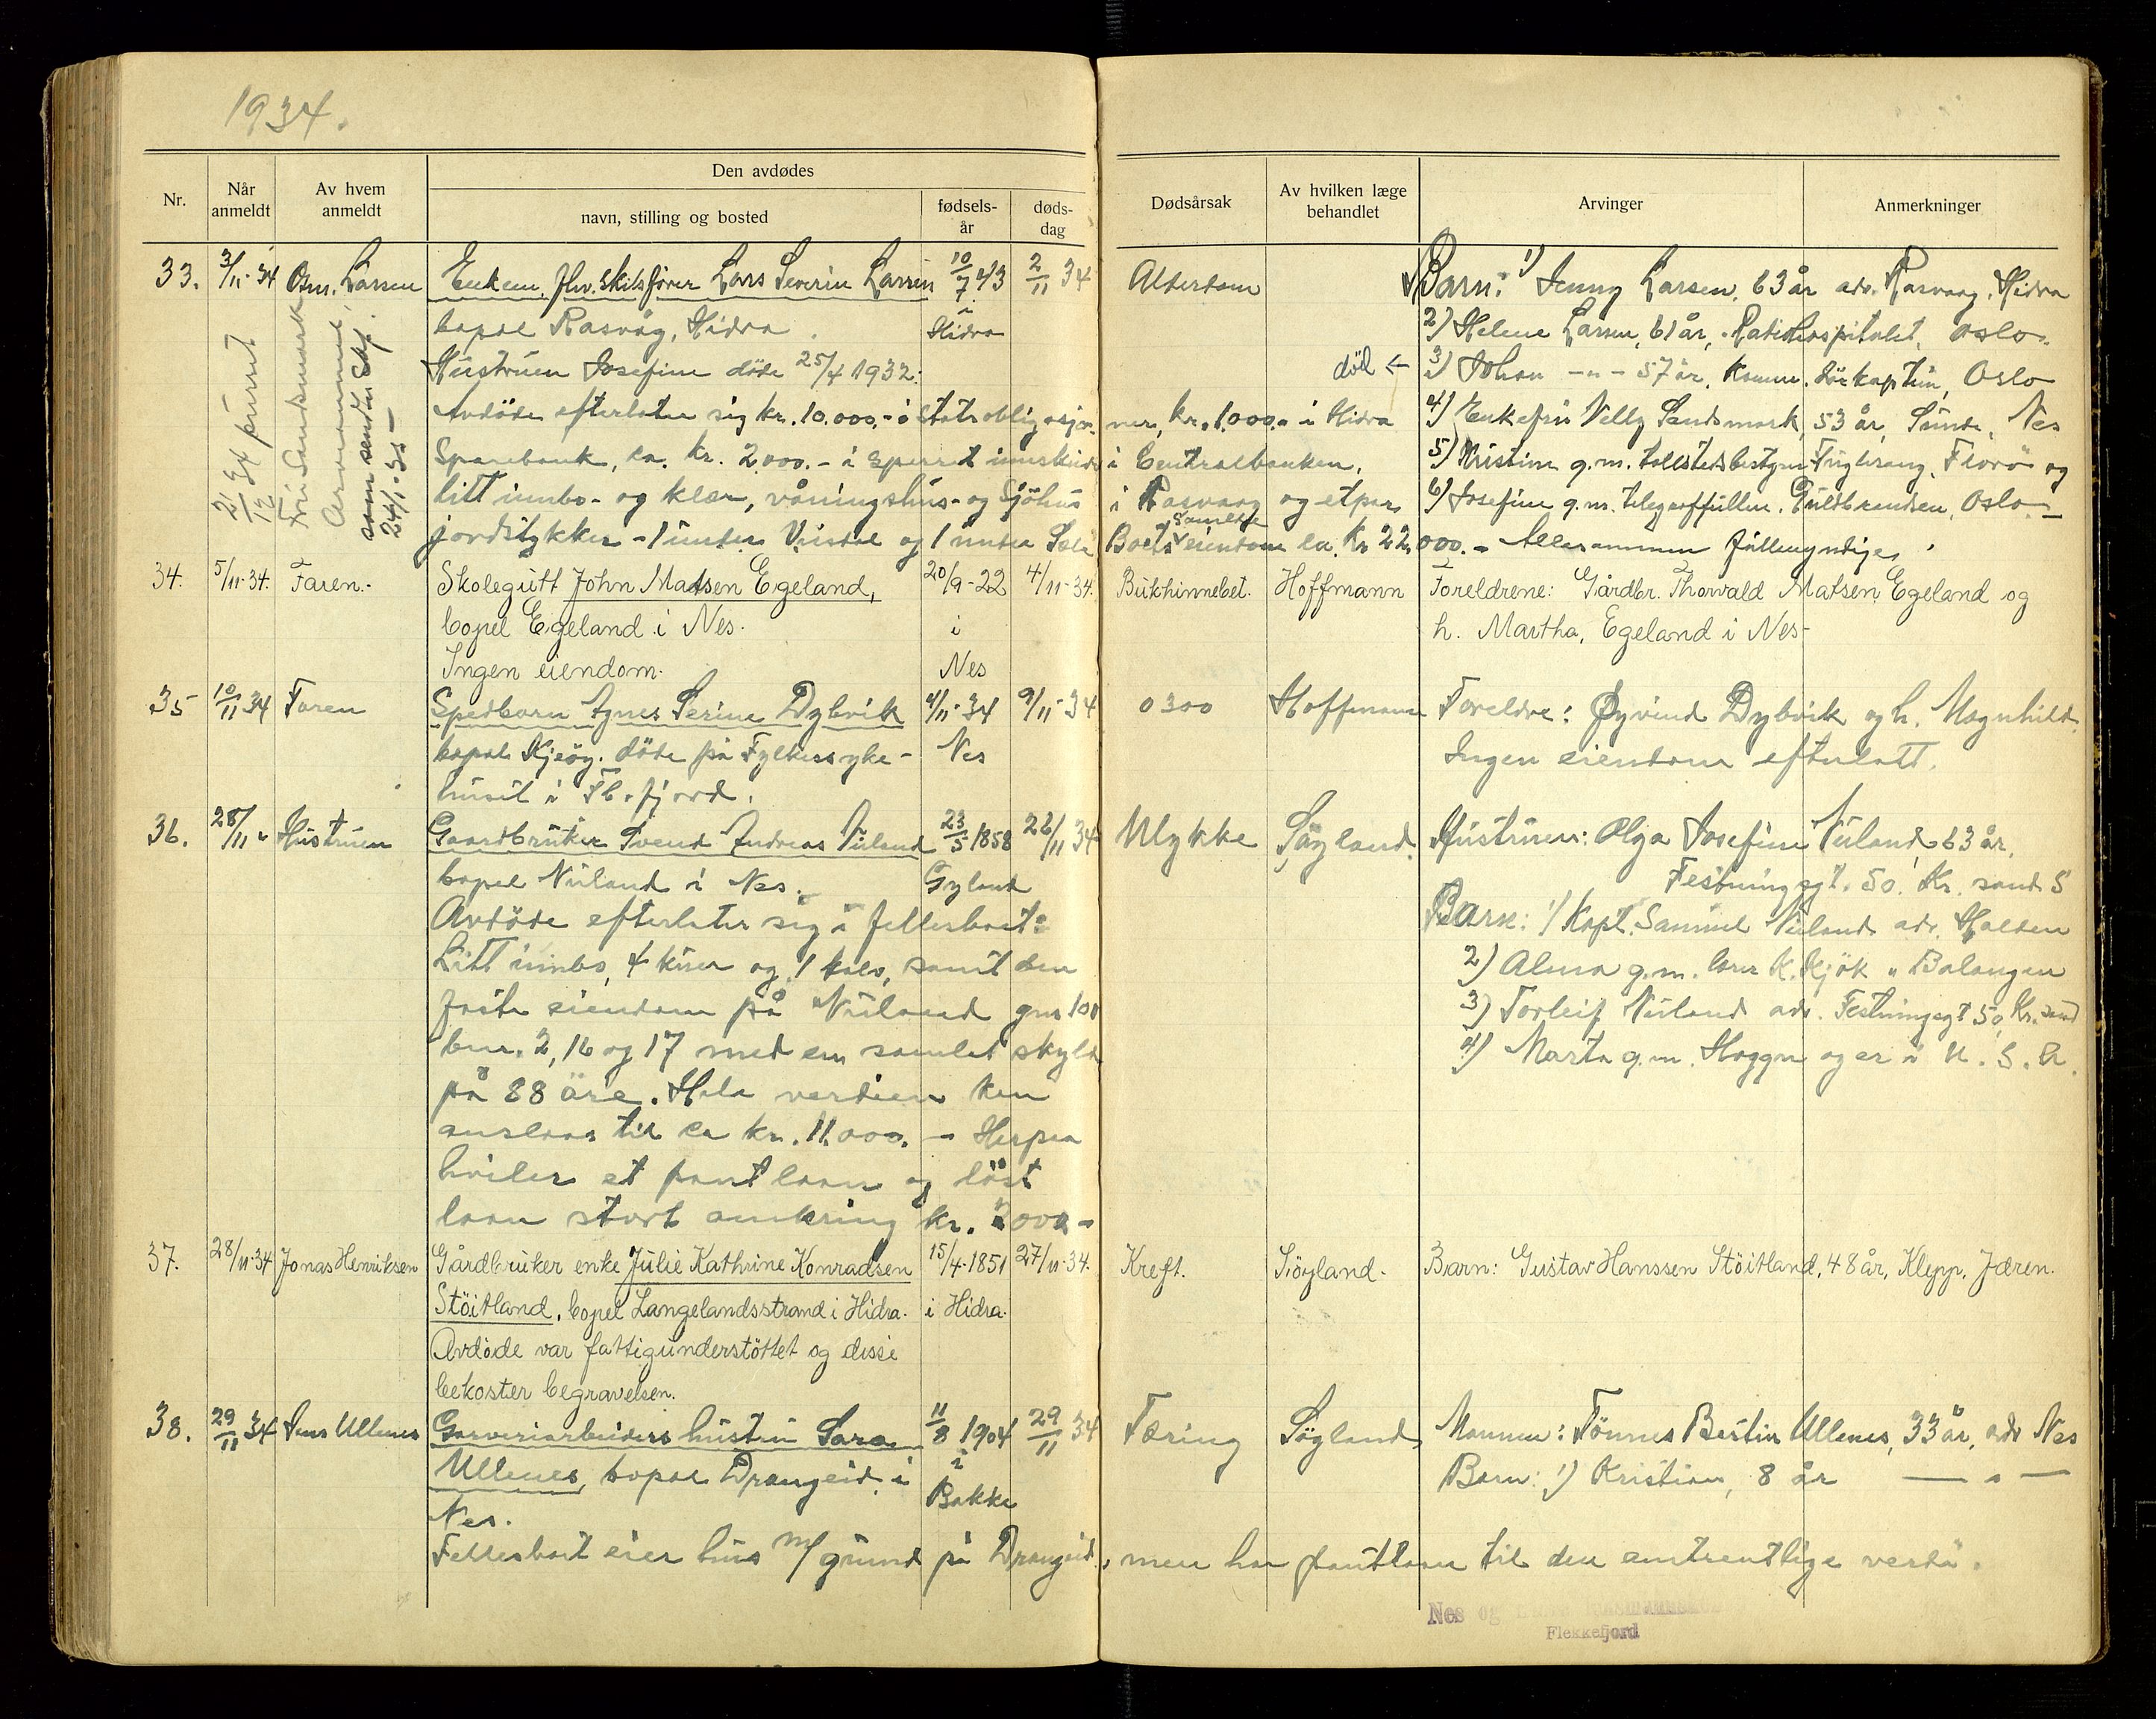 1934.
Nr.
Når anmeldt
Av hvem anmeldt
Den avdødes
navn, stilling og bosted
fødselsår
dødsdag
Dødsårsak
Av hvilken læge behandlet
Arvinger
Anmerkninger
33. 3/11-34 Larsen Enkem. fhv. skibsfører Lars Severin Larsen 10/7 43 2/11 34 Alderdom Barn: 1) Jenny Larsen, 63 år adr. Rasvaag, Hidra
bopæl Rasvåg, Hidra. i Hidra 2) Helene Larsen, 61 år, Oslo.
Hustruen Josefine döde 25/4 1932. död ← 3) Johan -"- 57 år, Oslo
Avdöde efterlater sig kr. 10.000.- i Statsobligasjoner, kr. 1000.- i Hidra 4) Enkefru Nelly Sandsmark, 53 år, Sunde, Nes
Sparebank, ca. kr. 2000.- i sperret innskudd i Centralbanken, 5) Kristine g.m. Florö og
litt innbo- og klær, våningshus- og Sjöhus i Rasvaag og et par 6) Josefine g.m. Guldbrandsen, Oslo
jordstykker - 1 under og 1 under Boets samlede eiendom ca. Kr 22.000.- Allesammen fullmyndige.
21/12 Ex pusset
Fru Sandsmark
som sender Skf.
24/1-35-
34. 5/11-34. Faren. Skolegutt John Madsen Egeland, 20/9-22 4/11-34. Bukhinnebet. Hoffmann Foreldrene: Gårdbr. Thorvald Matsen Egeland og
bopel Egeland i Nes. i h. Martha, Egeland i Nes-
Ingen eiendom. Nes
35 10/11 34 Faren Spedbarn Agnes Serine Dybvik 4/11-34 9/11-34 0300 Hoffmann Foreldre: Øyvind Dybvik og h. Magnhild.
bopæl Kjeöy. döde på Fylkessyke- Nes Ingen eiendom efterlatt.
huset i Fl.fjord.
36. 28/11 " Hustruen Gaardbruker Svend Andreas Nuland 23/5 1858 26/11 34 Ulykke Söyland. Hustruen: Olga Josefine Nuland 63 år,
bopæl Nuland i Nes. Gyland Festningsgt. 50. Kr. sand S
Avdöde efterlater sig i fellesboet: Barn: 1) Kapt. Samuel Nuland adr. Halden
Litt innbo, 4 kuer og 1 kalv, samt den 2) Alma g.m. lærer K. Kjök " Balangen
faste eiendom på Nuland gnr 101 3) Torleif Nuland adr. Festningsgt 50, Kr. sand
bnr. 2, 16 og 17 med en samlet skyld 4) Marta g.m. Haggn og er i U.S.A.
på 88 öre. Hele verdien kan
anslaas til ca kr. 11.000. - Herpaa
hviler et pantlaan og löst
laan stort omkring kr. 3000-
37. 28/11-34 Jonas Henriksen Gårdbruker enke Julie Kathrine Konradsen 15/4-1851 27/11-34. Kreft. Söyland. Barn: Gustav Hanssen Stöitland, 48 år, Klepp, Jæren.
Stöitland, bopel Langelandsstrand i Hidra. i Hidra.
Avdöde var fattigunderstöttet og disse
bekoster begravelsen.
38. 29/11 34 Jens Ullenes Garveriarbeiders hustru Sara 11/8 1904 29/11 34 Tæring Söyland Mannen: Tönnes Bertin Ullenes, 33 år, adr Nes
Ullenes, bopæl Drangeid i i Bakke Barn: 1) Kristian, 8 år — " —
Nes.
Fellesboet eier hus m/ grund på Drangeid, men har pantlaan til den omtrentlige verdi.
Nes og
Flekkefjord